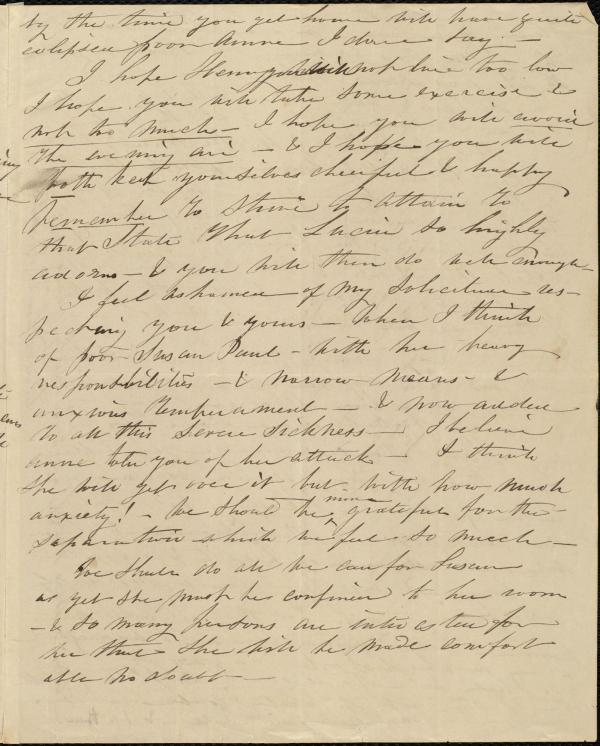 by the time you get home will have quite
eclipsed poor Anne I dare say. —
I hope Henry will not live too low
I hope you will take some exercise &
not too much — I hope you will avoid
the evening air — & I hope you will
both keep yourselves cheerful & happy
remember to strive to attain to
that State that Lucia so highly
adorns — & you will then do well enough —
I feel ashamed of my Solicitude res-
pecting you & yours — when I think
of poor Susan Paul — with her heavy
responsibilities — & narrow means — &
anxious temperament — & now added
to all this severe sickness — I believe
Anne told you of her attack — I think
she will get over it but with how much
anxiety! — We should be more grateful for the
separation which we feel so much —
We shall do all we can for Susan
as yet she must be confined to her room
— & so many persons are interested for
her that she will be made comfort
able no doubt —